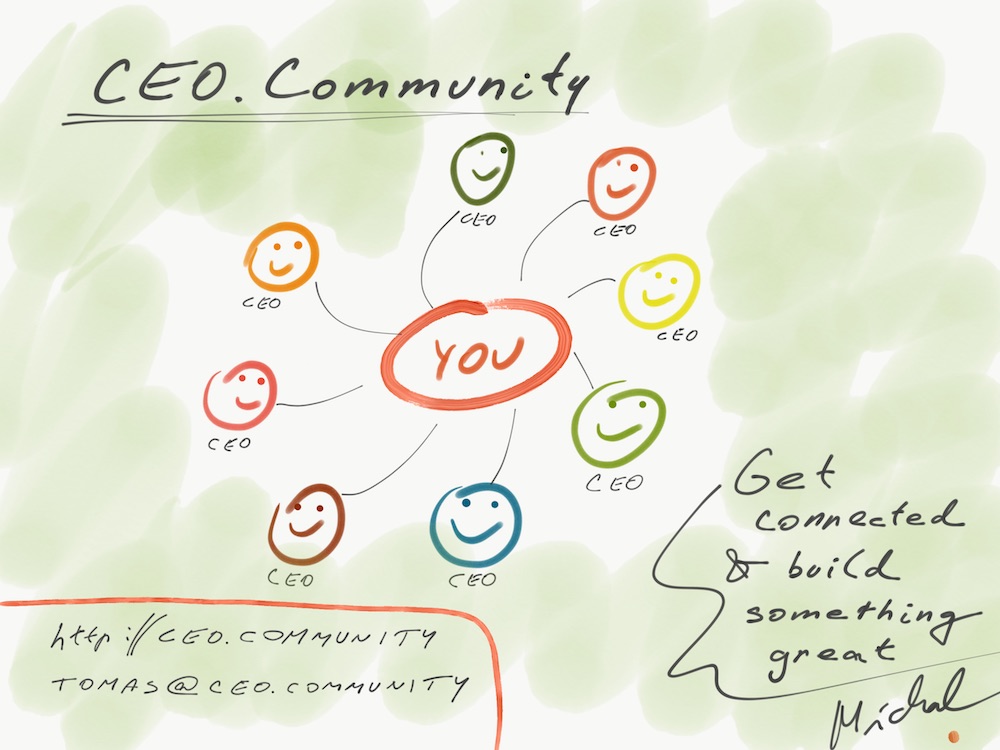 CEO.Community
CEO
CEO
CEO
CEO
YOU
CEO
CEO
CEO
CEO
Get
connected
& build
something
great
http://CEO.COMMUNITY
TOMAS@CEO.COMMUNITY
Michal